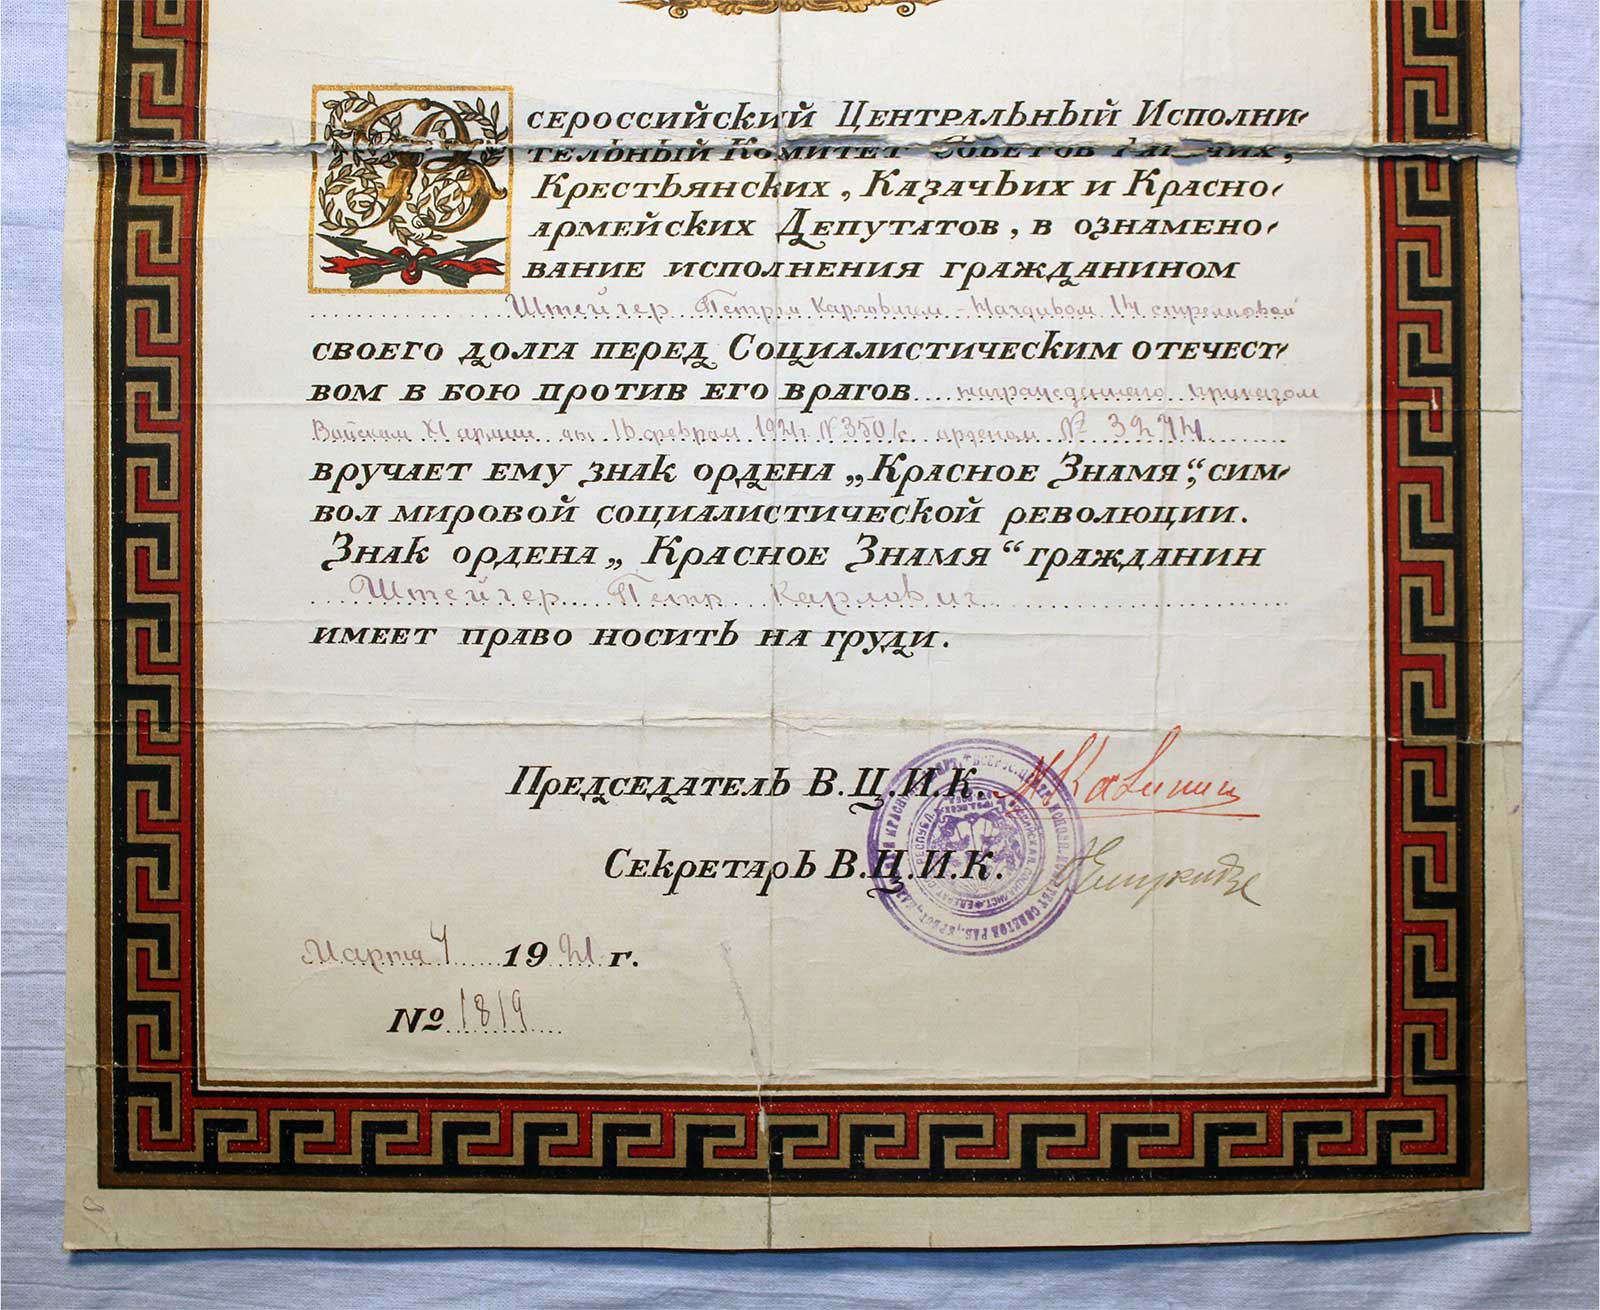 Всероссийский Центральный Исполни-
тельный Комитет Советов Рабочих,
Крестьянских, Казачьих и Красно-
армейских Депутатов, в ознамено-
вание исполнения гражданином
Штейгер Петром Карловичем - Начдивом 14 стрелковой
своего долга перед Социалистическим отечест-
вом в бою против его врагов награжденного приказом
Войскам XI армии от 16 февраля 1921г №350/с орденом №
вручает ему знак ордена „Красное Знамя“, сим-
вол мировой социалистической революции.
Знак ордена „Красное Знамя“ гражданин
Штейгер Петр Карлович
имеет право носить на груди.
Председатель В.Ц.И.К. М Калинин
Секретарь В.Ц.И.К. А Енукидзе
Марта 4 1921 г.
№ 1819